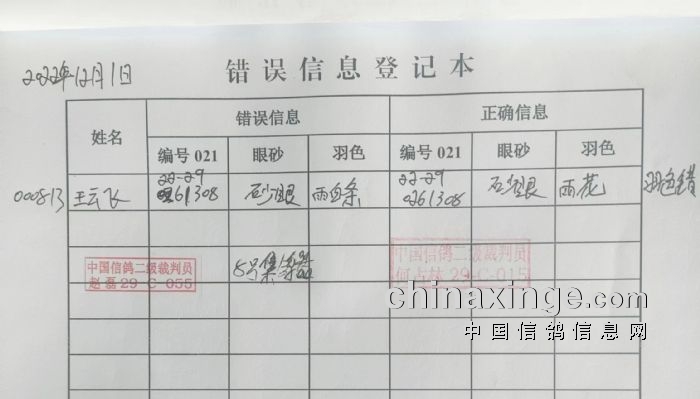 错误信息登记本
2022年12月1日
姓名 错误信息 正确信息
编号 021 眼砂 羽色 编号 021 眼砂 羽色
22-29 22-29
000813 王云飞 0261308 砂眼 雨白条 0261308 砂眼 雨花 羽色错
中国信鸽二级裁判员
赵磊 29-C-055
8号集
中国信鸽二级裁判员
何占林 29-C-015
chinaxinge.com
中国信鸽信息网